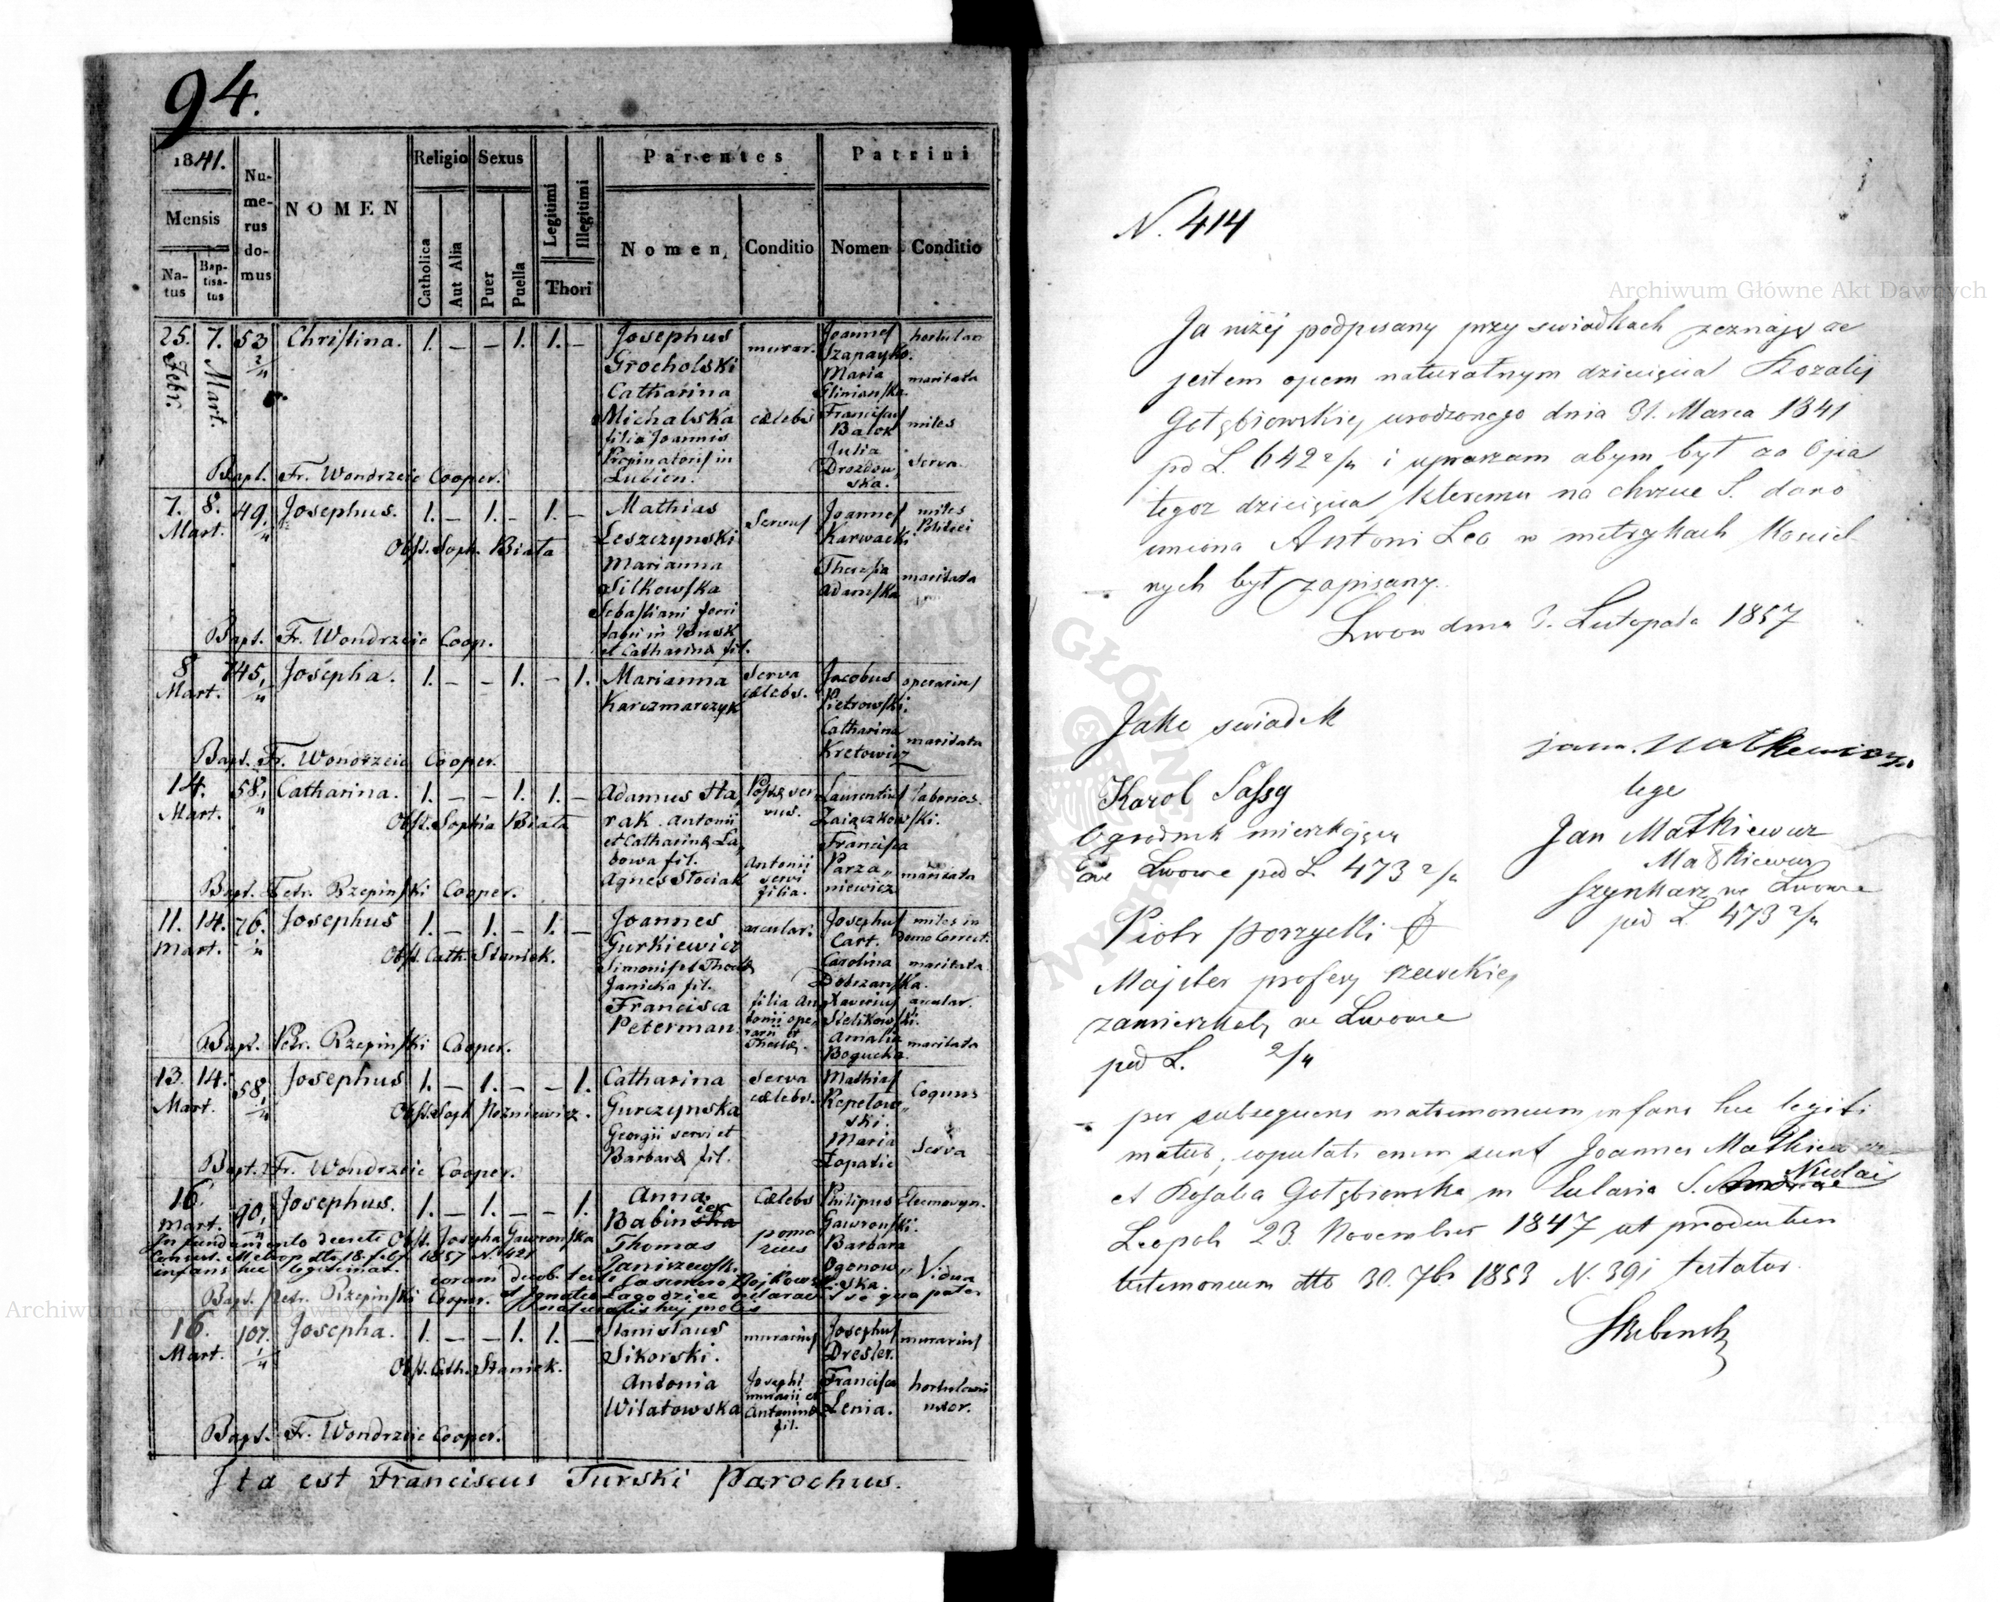 94.
1841.
Mensis
Natus
Baptisatus
Numerus domus
NOMEN
Religio
Catholica
Aut Alia
Sexus
Puer
Puella
Legitimi
Illegitimi
Thori
Parentes
Nomen
Conditio
Patrini
Nomen
Conditio
25. Febr. 7. Mart. 53 2/4 Christina. 1. – – 1. 1. –
Josephus
Grocholski
Catharina
Michalska
filia Joannis
Propinatoris in
Lubien.
murar.
cælebs
Joannes
Szapayko.
Maria
Franciscus
Balok
Julia
Drozdow
ska.
hortulan
maritata
miles
serva.
Bapt. Fr. Wondrzeic Cooper.
7. 8. Mart. 49. 1/4 Josephus. 1. – 1. – 1. –
Obst. Soph. Biała
Mathias
Leszczynski
Marianna
Silkowska
Sebastiani
et Catharinæ fil.
Servus
Joannes
Karwacki
Theresia
Adamska
miles
Politiei
maritata
Bapt. Fr. Wondrzeic Coop.
8 Mart. 745 1/4 Josepha. 1. – – 1. – 1.
Marianna
Karczmarczyk
Serva
cælebs.
Jacobus
Pietrowski.
Catharina
Kretowicz
operarius
maritata
Bapt. Fr. Wondrzeic Cooper.
14. Mart. 58 1/4 Catharina. 1. – – 1. 1. –
Obst. Sophia Biała
Adamus Ha
rak. Antonii
et Catharinæ La
bowa fil.
Agnes Stociak
Antonii
servi
filia.
Laurentius
Zaiączkowski.
Francisca
Parza
niewicz
laborios.
maritata
Bapt. Petr. Rzepinski Cooper.
11. 14. Mart. 76. 1/4 Josephus 1. – 1. – 1. –
Obst. Cath. Staniek.
Joannes
Gurkiewicz
Simonis et Theclæ
Janicka fil.
Francisca
Peterman.
arcular:
filia An
tonii ope
rarii et
Theclæ.
Josephus
Cart.
Carolina
Dobrzanska.
Xaverius
Sielikowski.
Amalia
Bogucka.
miles in
Domo Correct.
maritata
arcular.
maritata
Bapt. Petr. Rzepinski Cooper.
13. 14. Mart. 58 1/4 Josephus 1. – 1. – – 1.
Obst. Soph. Pozniewicz.
Catharina
Gurczynska
Georgii servi et
Barbaræ fil.
Serva
cælebs.
Mathias
Repetow
ski.
Maria
Łopatic
Coquus
Serva
Bapt. Fr. Wondrzeic Cooper.
16. Mart. 90. 1/4 Josephus. 1. – 1. – – 1.
Obst. Josepha Gawronska
Anna
Babinska
Thomas
Janiszewski
Cælebs
Philipus
Gawronski.
Barbara
Ogonow
ska.
Eleemosyn.
Vidua
In fundamento decreti
Consist. Metrop. dto 18. feb. 1857 N. 421
infans hic legitimat.
coram duob. test.
Casimiro Wojkowski
et Ignatio Łagodzicz declaravit se qua pater
naturalis huj prolis
Bapt. Petr. Rzepinski Cooper.
16. Mart. 107. 1/4 Josepha. 1. – – 1. 1. –
Obst. Cath. Staniek.
Stanislaus
Sikorski.
Antonia
Wilatowska
murarius
Josephi
murarii et
Antoninæ
fil.
Josephus
Dresler.
Francisca
Lenia.
murarius
hortulani
uxor.
Bapt. Fr. Wondrzeic Cooper.
Ita est Franciscus Turski Parochus.
N. 414
Ja niżej podpisany przy swiadkach zeznaję że
jestem ojcem naturalnym dziecięcia Rozalij
Gołębiowskiej urodzonego dnia 31. Marca 1841
pd L. 642 2/4 i upraszam abym był za Ojca
tegoż dziecięcia któremu na chrzcie S. dano
imiona Antoni Leo w metrykach Kosciel
nych był zapisany.
Lwow dnia 3. Listopada 1857
Jako swiadek
Karol Sassy
Ogrodnik mieszkający
we Lwowe pod L 473 2/4
Piotr Porzycki
Majster profesy rzeźnickiej
zamieszkały we Lwowe
pod L. 2/4
Jan Małkiewicz
Jan Małkiewicz
Małkiewicz
szynkarz we Lwowe
pod L. 473 2/4
per subsequens matrimonium infans hic legiti
matus, copulati enim sunt Joannes Małkiewicz
et Rosalia Gołębiowska in Eclesia S. Nicolai
Leopoli 23. Novembris 1847 ut productum
testimonium dtto 30. 7br 1853 N. 391 testatur.
Archiwum Główne Akt Dawnych
Archiwum Główne Akt Dawnych